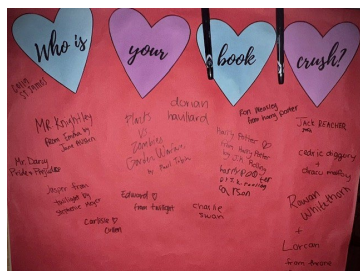 Who is
your
book
crush?
MR Knightley
From Emma by
Jane Austen
Mr. Darcy
Jasper from
twilight by
Carlisle ♡
Cullen
Plants
♡
Zombies
Garden Warfare
dorian
havilliard
Edward ♡
from twilight
charlie
swan
Ron Weasley
from harry potter
Harry Potter
♡
from Harry Potter
by J.K. Rowling
JACK REACHER
cedric diggory
+
draco malfoy
Rowan
Whitethorn
+
Lorcan